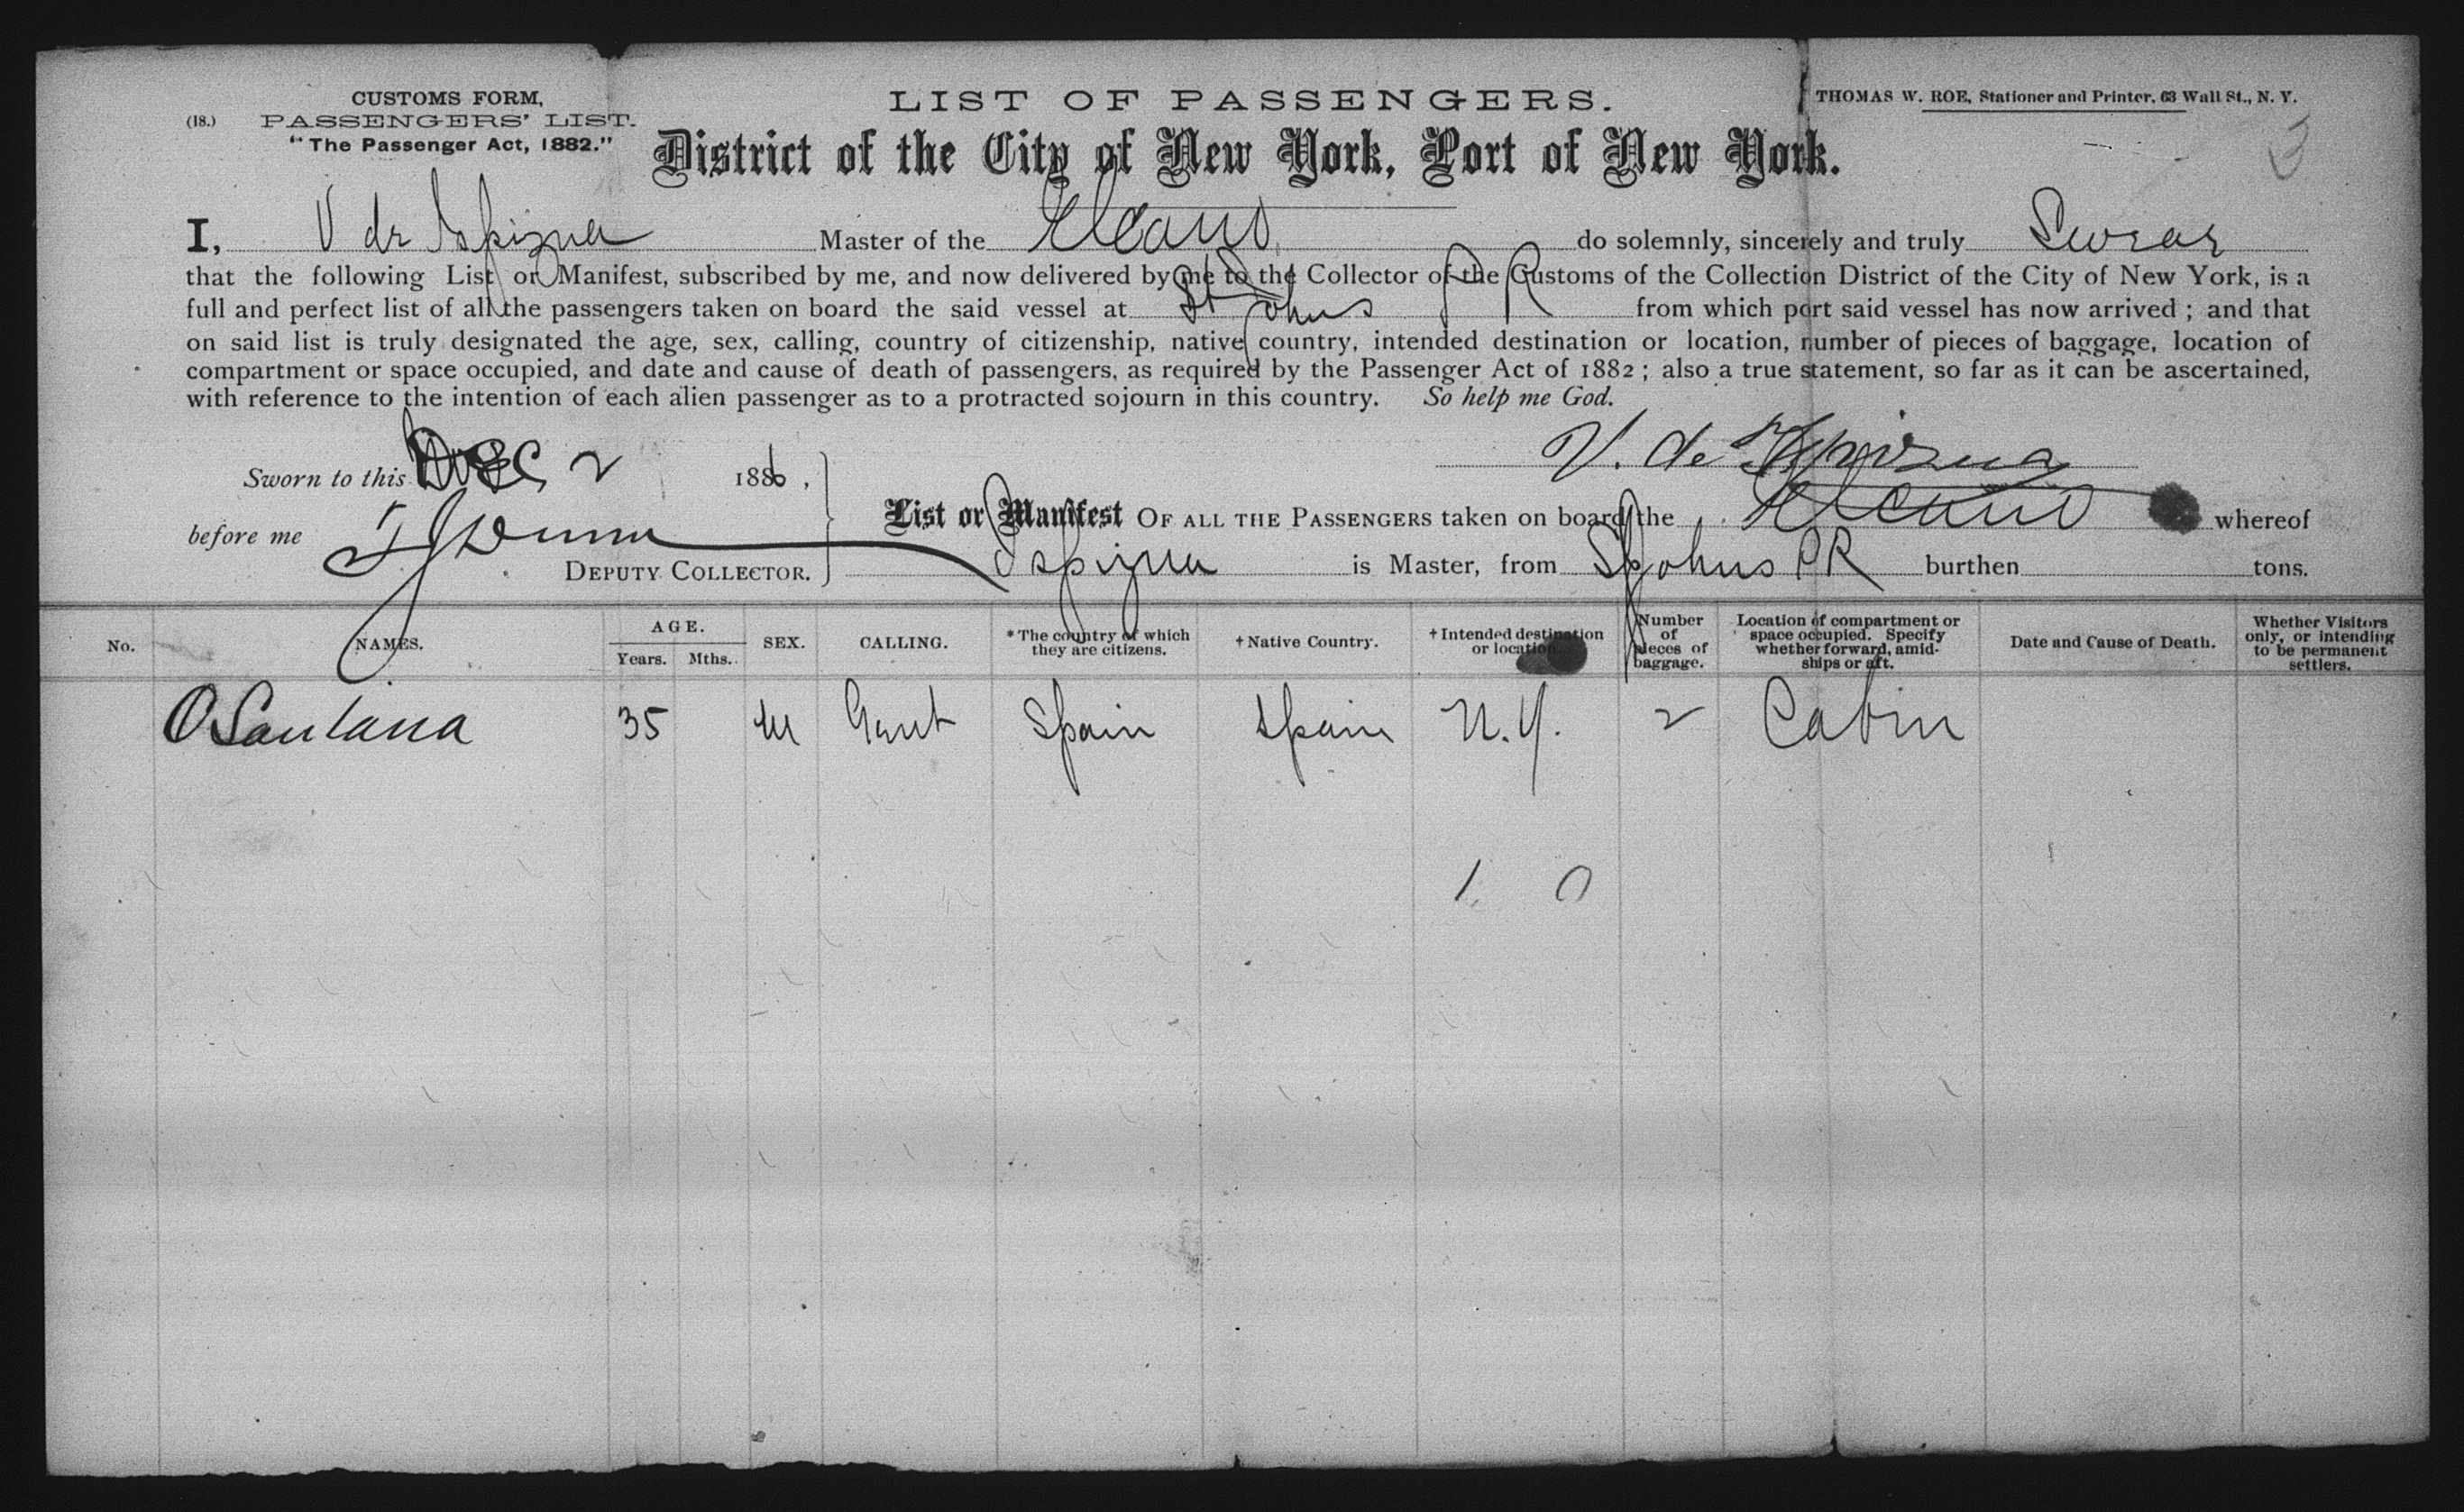 CUSTOMS FORM,
(18.) PASSENGERS' LIST.
"The Passenger Act, 1882."
LIST OF PASSENGERS.
THOMAS W. ROE, Stationer and Printer, 63 Wall St., N. Y.
3
District of the City of New York, Port of New York.
I, V de Ispizua Master of the Elcano do solemnly, sincerely and truly Swear
that the following List or Manifest, subscribed by me, and now delivered by me to the Collector of the Customs of the Collection District of the City of New York, is a
full and perfect list of all the passengers taken on board the said vessel at St Johns P R from which port said vessel has now arrived ; and that
on said list is truly designated the age, sex, calling, country of citizenship, native country, intended destination or location, number of pieces of baggage, location of
compartment or space occupied, and date and cause of death of passengers, as required by the Passenger Act of 1882 ; also a true statement, so far as it can be ascertained,
with reference to the intention of each alien passenger as to a protracted sojourn in this country. So help me God.
V. de Ispizua
Sworn to this Dec 2 1886,
before me T J Dunn
DEPUTY COLLECTOR.
List or Manifest OF ALL THE PASSENGERS taken on board the Elcano whereof
Ispizua is Master, from St Johns PR burthen tons.
No. NAMES. AGE. Years. Mths. SEX. CALLING. *The country of which they are citizens. †Native Country. †Intended destination or location. Number of pieces of baggage. Location of compartment or space occupied. Specify whether forward, amid-ships or aft. Date and Cause of Death. Whether Visitors only, or intending to be permanent settlers.
O Santana 35 M Gent Spain Spain N.Y. 2 Cabin
1 0